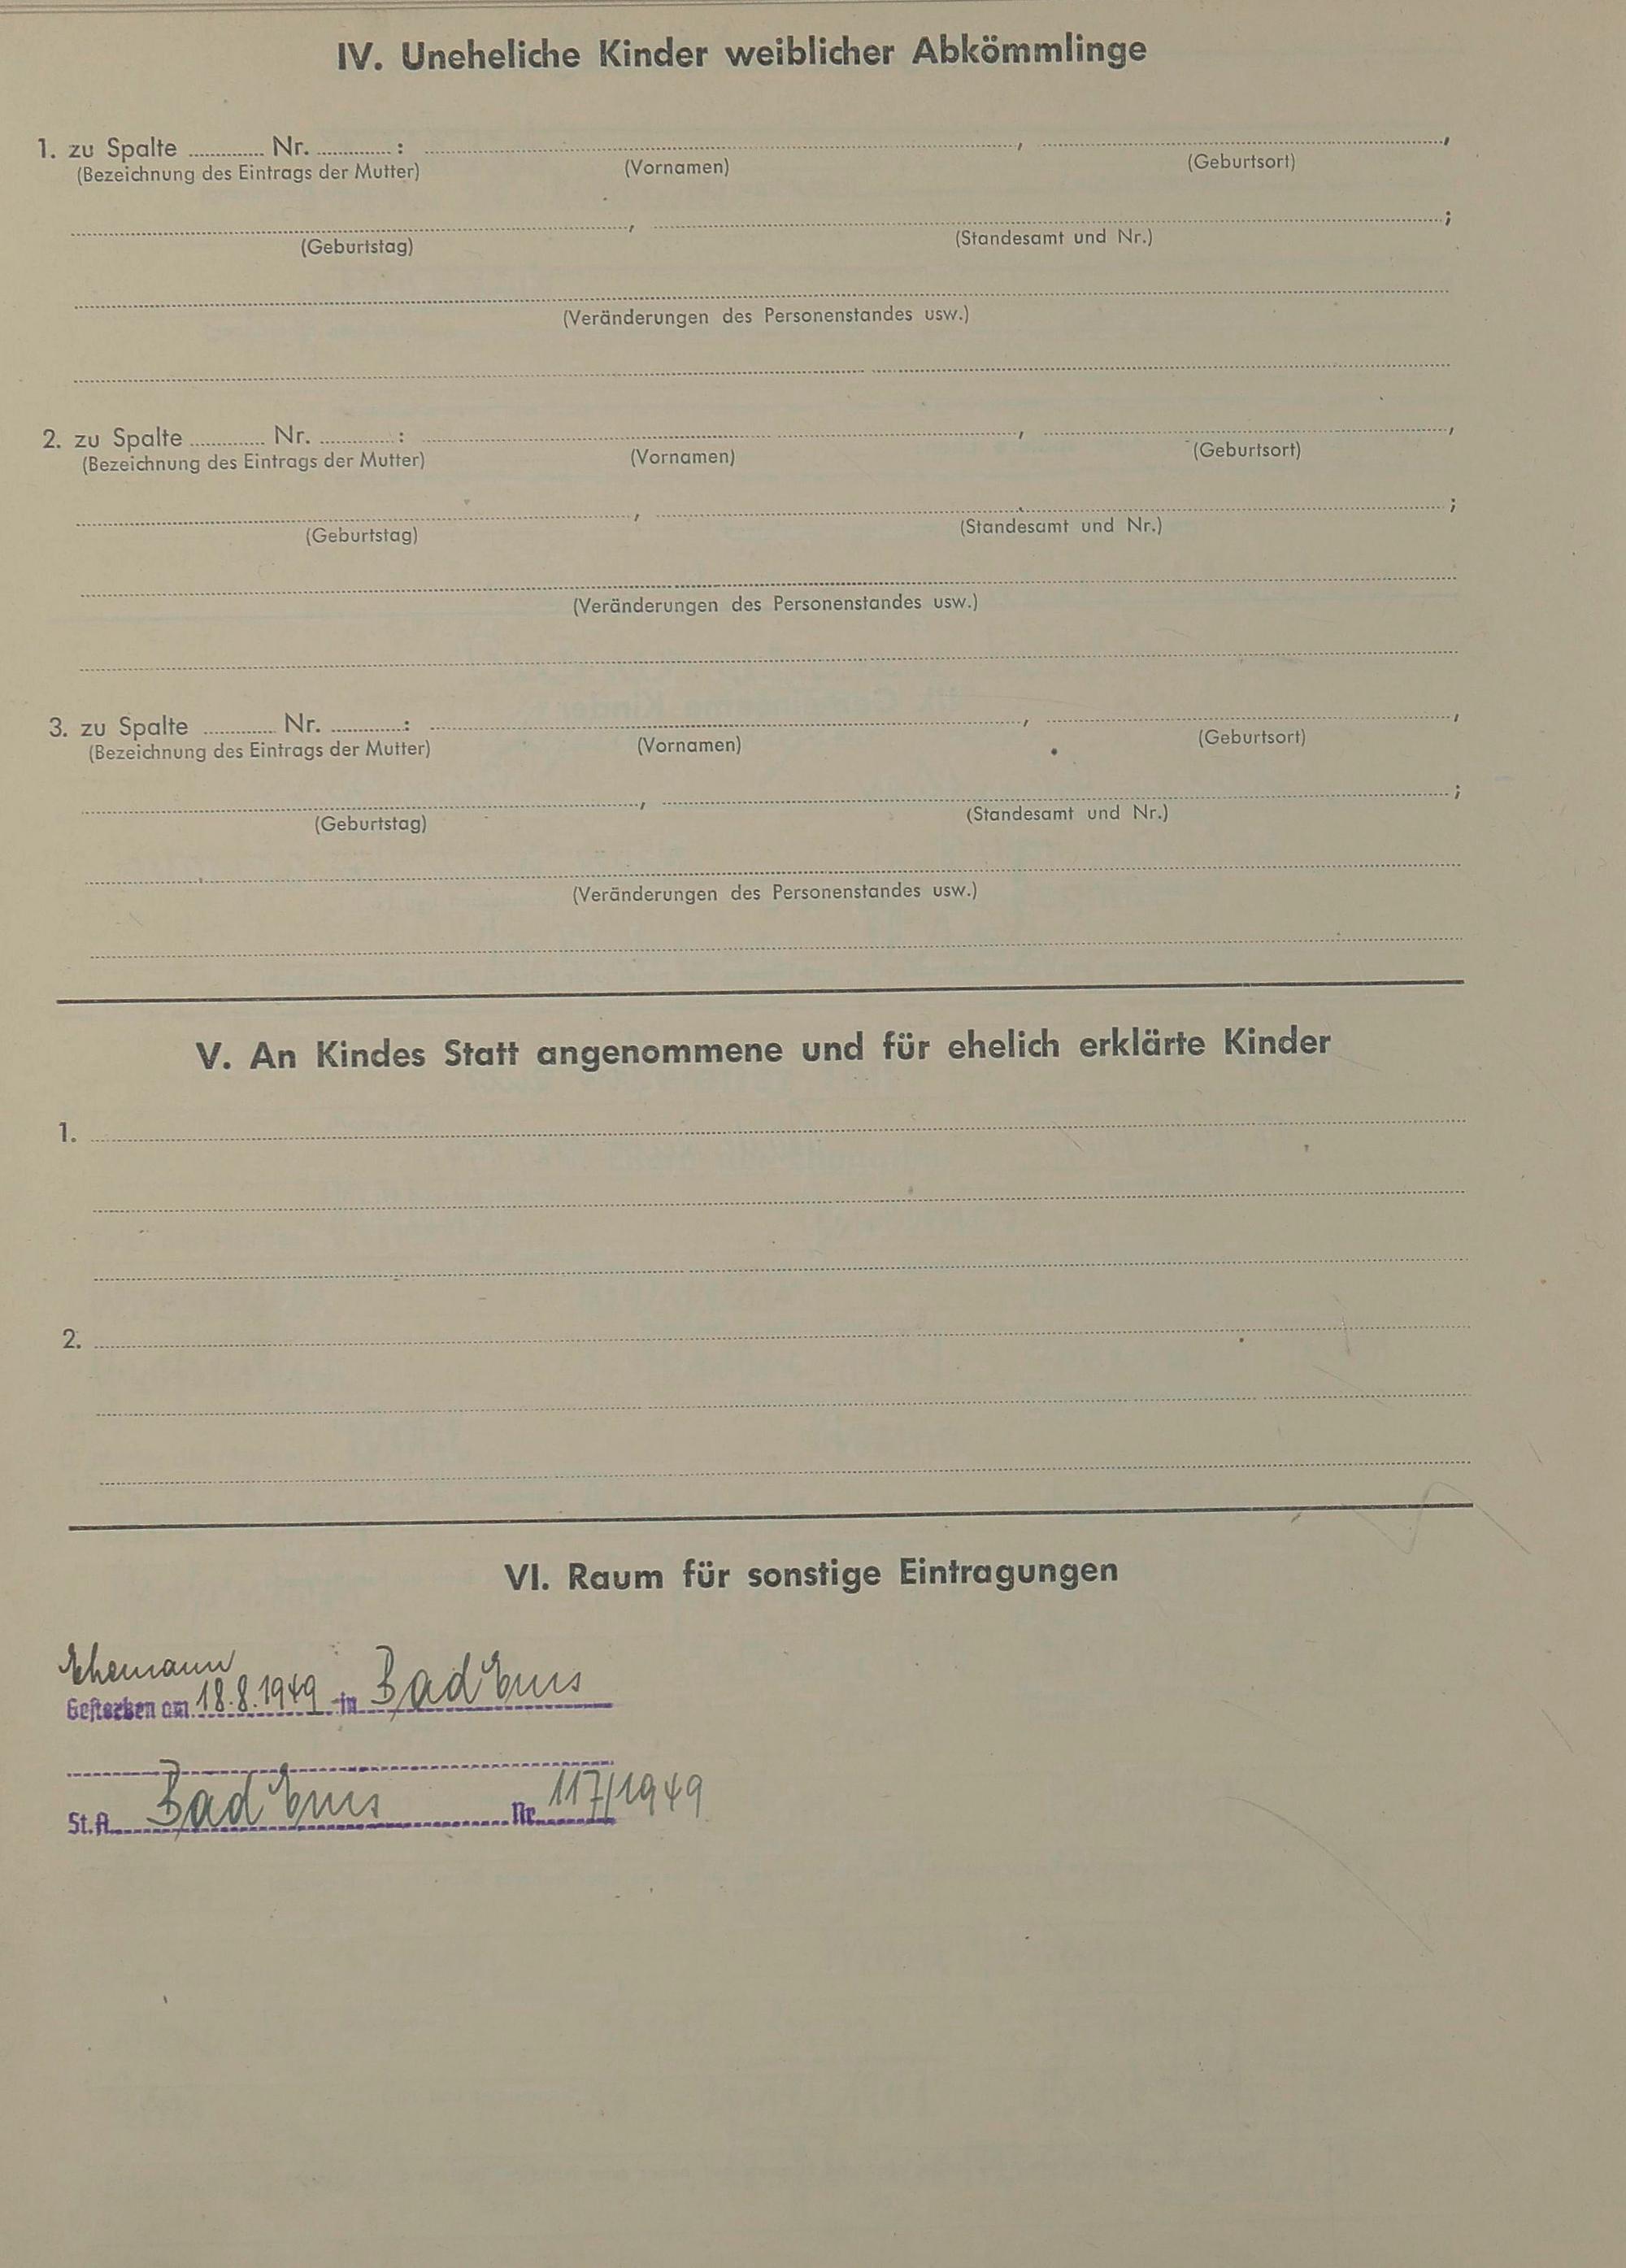 IV. Uneheliche Kinder weiblicher Abkömmlinge
1. zu Spalte ............ Nr. ............ : ............ , ............ ,
(Bezeichnung des Eintrags der Mutter) (Vornamen) (Geburtsort)
............ , ............ ;
(Geburtstag) (Standesamt und Nr.)
(Veränderungen des Personenstandes usw.)
2. zu Spalte ............ Nr. ............ : ............ , ............ ,
(Bezeichnung des Eintrags der Mutter) (Vornamen) (Geburtsort)
............ , ............ ;
(Geburtstag) (Standesamt und Nr.)
(Veränderungen des Personenstandes usw.)
3. zu Spalte ............ Nr. ............ : ............ , ............ ,
(Bezeichnung des Eintrags der Mutter) (Vornamen) (Geburtsort)
............ , ............ ;
(Geburtstag) (Standesamt und Nr.)
(Veränderungen des Personenstandes usw.)
V. An Kindes Statt angenommene und für ehelich erklärte Kinder
1.
2.
VI. Raum für sonstige Eintragungen
Ehemann
Gestorben am 18.8.1949 in Bad Ems
St.A. Bad Ems Nr. 117/1949